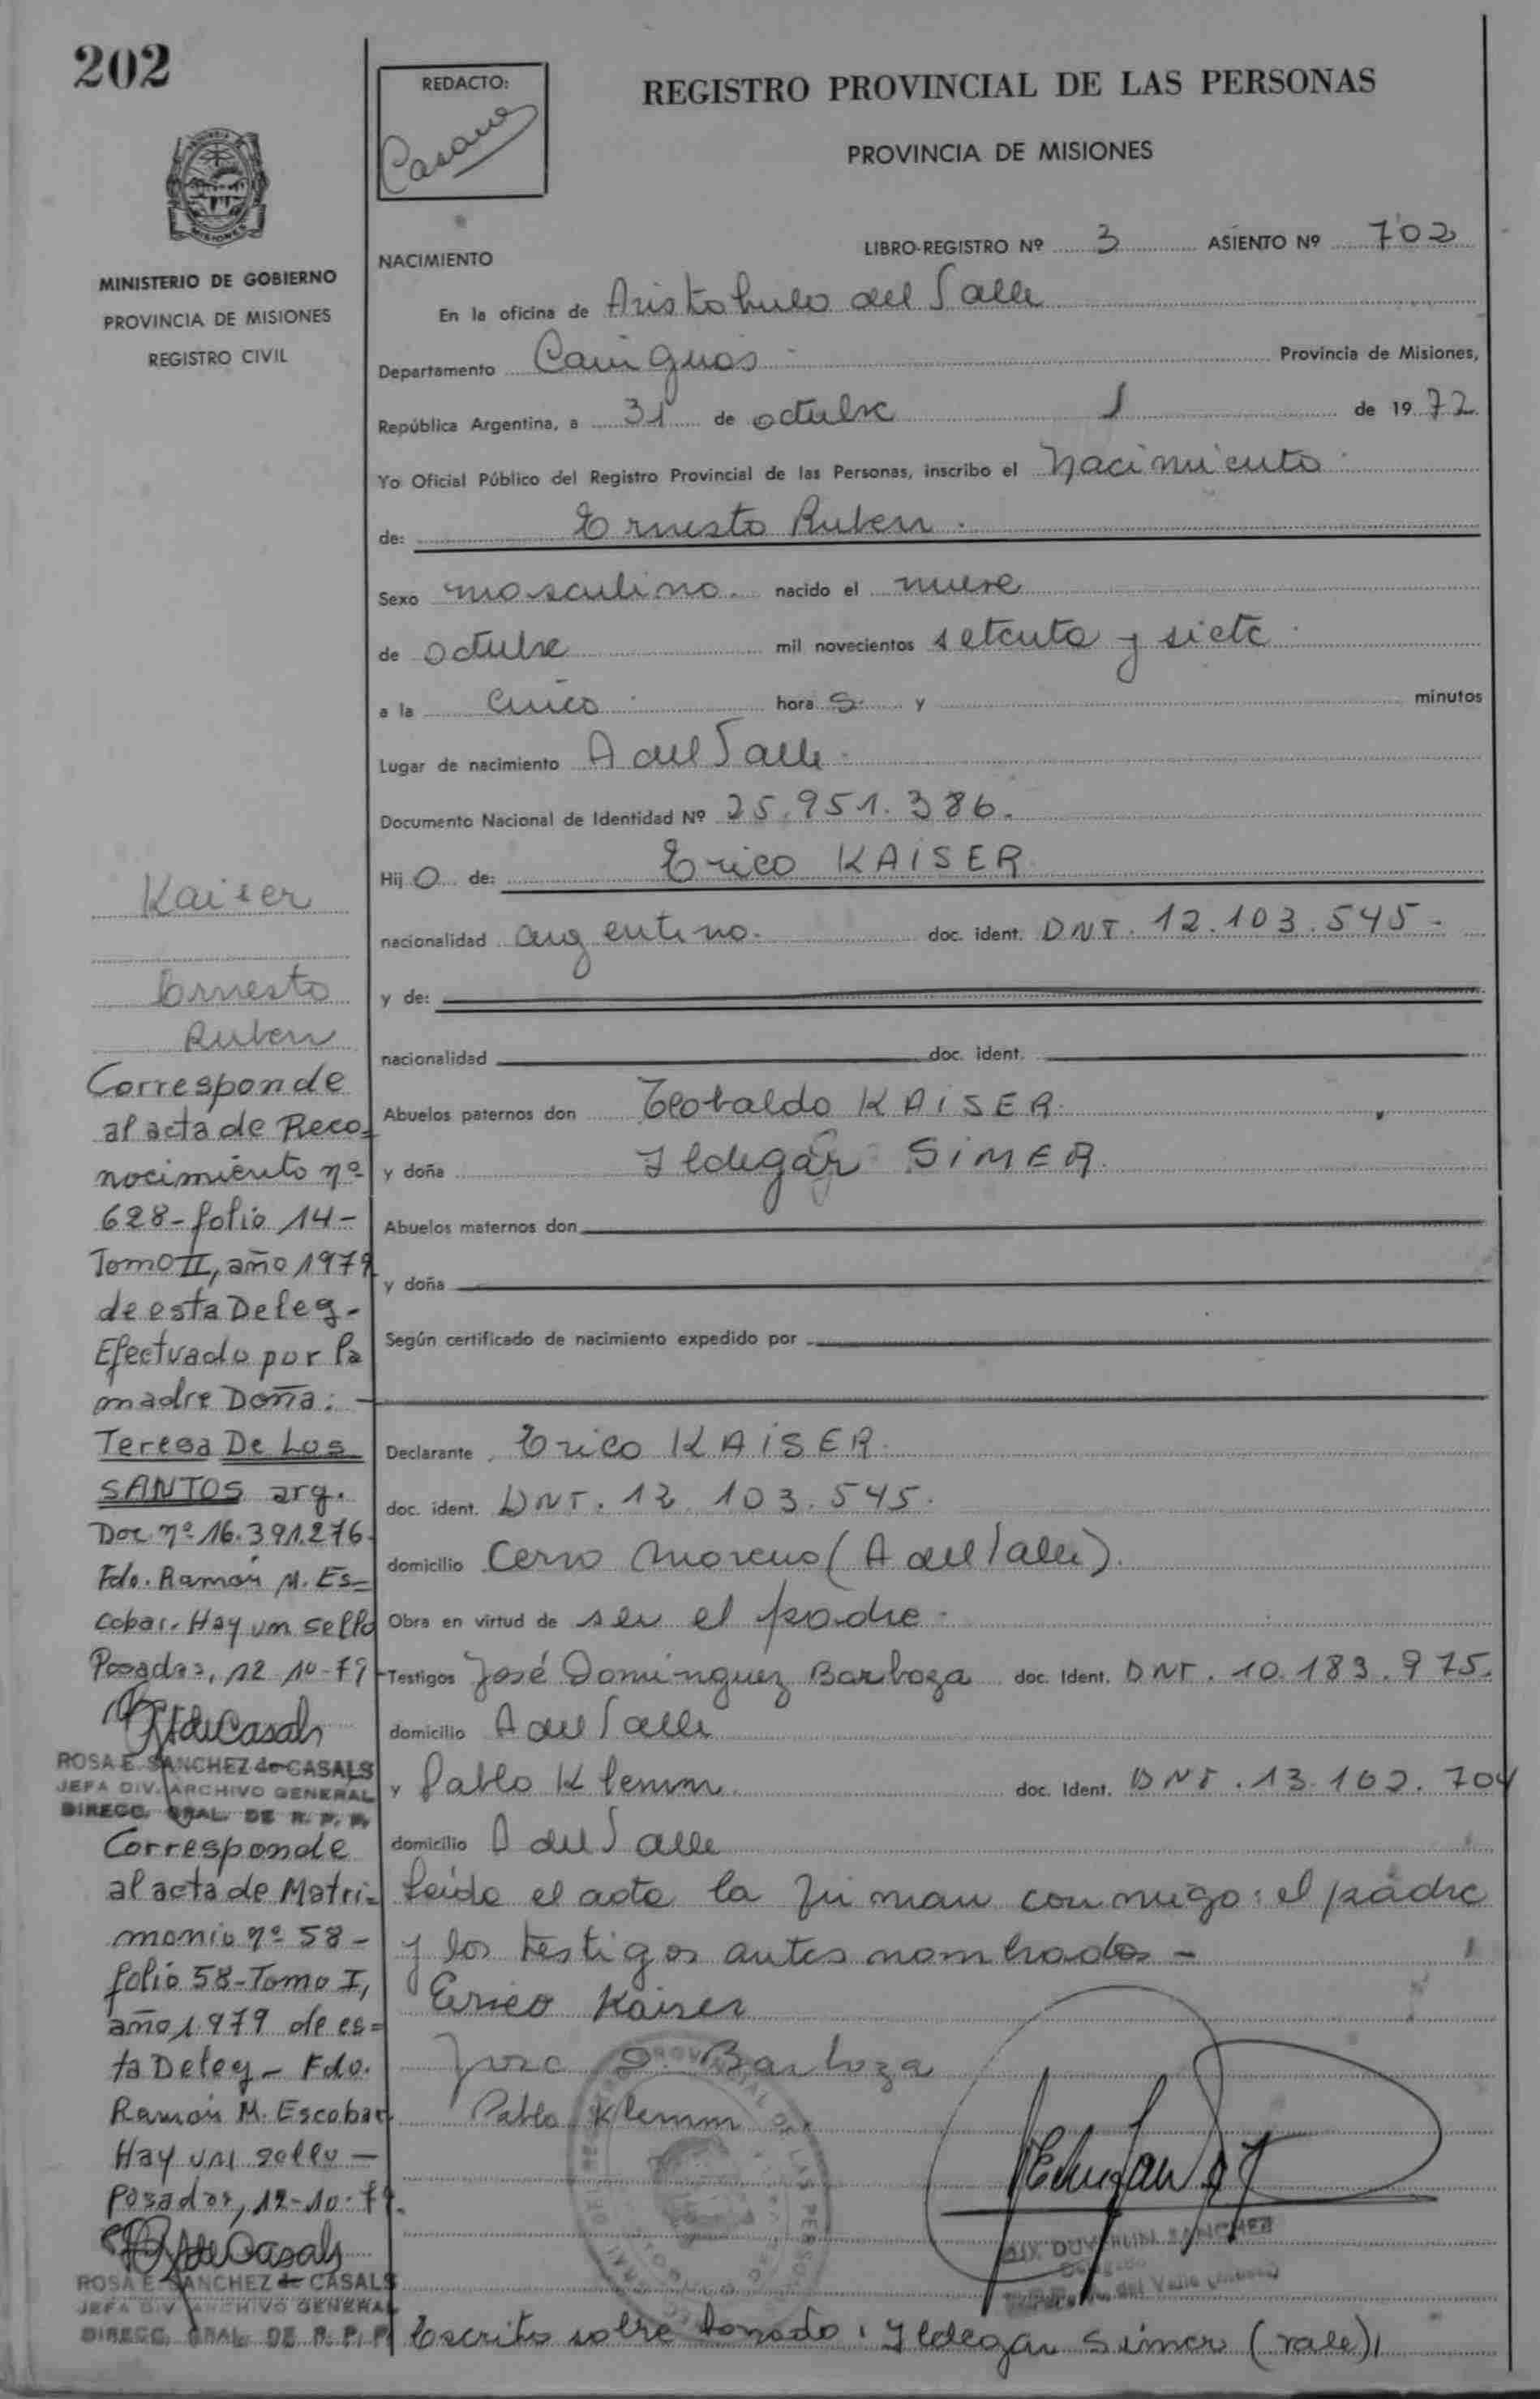 202
REDACTO:
REGISTRO PROVINCIAL DE LAS PERSONAS
PROVINCIA DE MISIONES
MISIONES
MINISTERIO DE GOBIERNO
PROVINCIA DE MISIONES
REGISTRO CIVIL
LIBRO-REGISTRO Nº 3 ASIENTO Nº 702
NACIMIENTO
En la oficina de Aristobulo del Valle
Departamento Cainguas Provincia de Misiones,
República Argentina, a 31 de octubre de 1972
Yo Oficial Público del Registro Provincial de las Personas, inscribo el Nacimiento
de: Ernesto Ruben
Sexo masculino nacido el nueve
de octubre mil novecientos setenta y siete
a la cinco hora s y minutos
Lugar de nacimiento A del Valle
Documento Nacional de Identidad Nº 25.951.386.
Hij o de: Erico KAISER
nacionalidad argentino. doc. ident. DNI. 12.103.545.
y de:
nacionalidad doc. ident.
Abuelos paternos don Teobaldo KAISER
y doña Ildegar SIMER
Abuelos maternos don
y doña
Según certificado de nacimiento expedido por
Declarante Erico KAISER
doc. ident. DNI. 12.103.545.
domicilio Cerro Moreno (A del Valle).
Obra en virtud de ser el padre.
Testigos José Dominguez Barboza doc. Ident. DNI. 10.183.975.
domicilio A del Valle
y Pablo Klemm doc. Ident. DNI. 13.102.704
domicilio A del Valle
Leída el acta la firman conmigo: el padre
y los testigos antes nombrados -
Erico Kaiser
Jose D. Barboza
Pablo Klemm
SANCHEZ
del Valle
Escrito sobre borrado: Ildegar Simer (vale)
Kaiser
Ernesto
Ruben
Corresponde
al acta de Reco-
nocimiento nº
628- folio 14-
Tomo II, año 1979
de esta Deleg-
Efectuado por la
madre Doña:
Teresa De Los
SANTOS arg.
Doc nº 16.391.276
Fdo. Ramón M. Es-
cobar. Hay un sello
Posadas, 12 10-79
ROSA E. SANCHEZ de CASALS
JEFA DIV. ARCHIVO GENERAL
DIRECC. GRAL. DE R. P. P.
Corresponde
al acta de Matri-
monio nº 58-
folio 58-Tomo I,
año 1979 de es-
ta Deleg- Fdo.
Ramón M. Escobar
Hay un sello —
Posadas, 12-10-79.
ROSA E. SANCHEZ de CASALS
JEFA DIV ARCHIVO GENERAL
DIRECC. GRAL. DE R. P. P